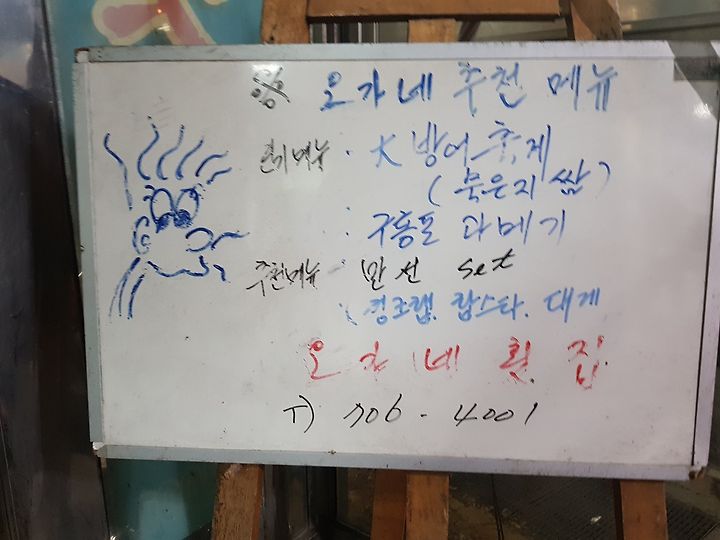 ※ 오가네 추천 메뉴
인기메뉴 · 大 방어축제
(묵은지 쌈)
: 구룡포 과메기
추천메뉴 : 만선 set
(킹크랩. 랍스타. 대게
오가네 횟집
T) 706 - 4001